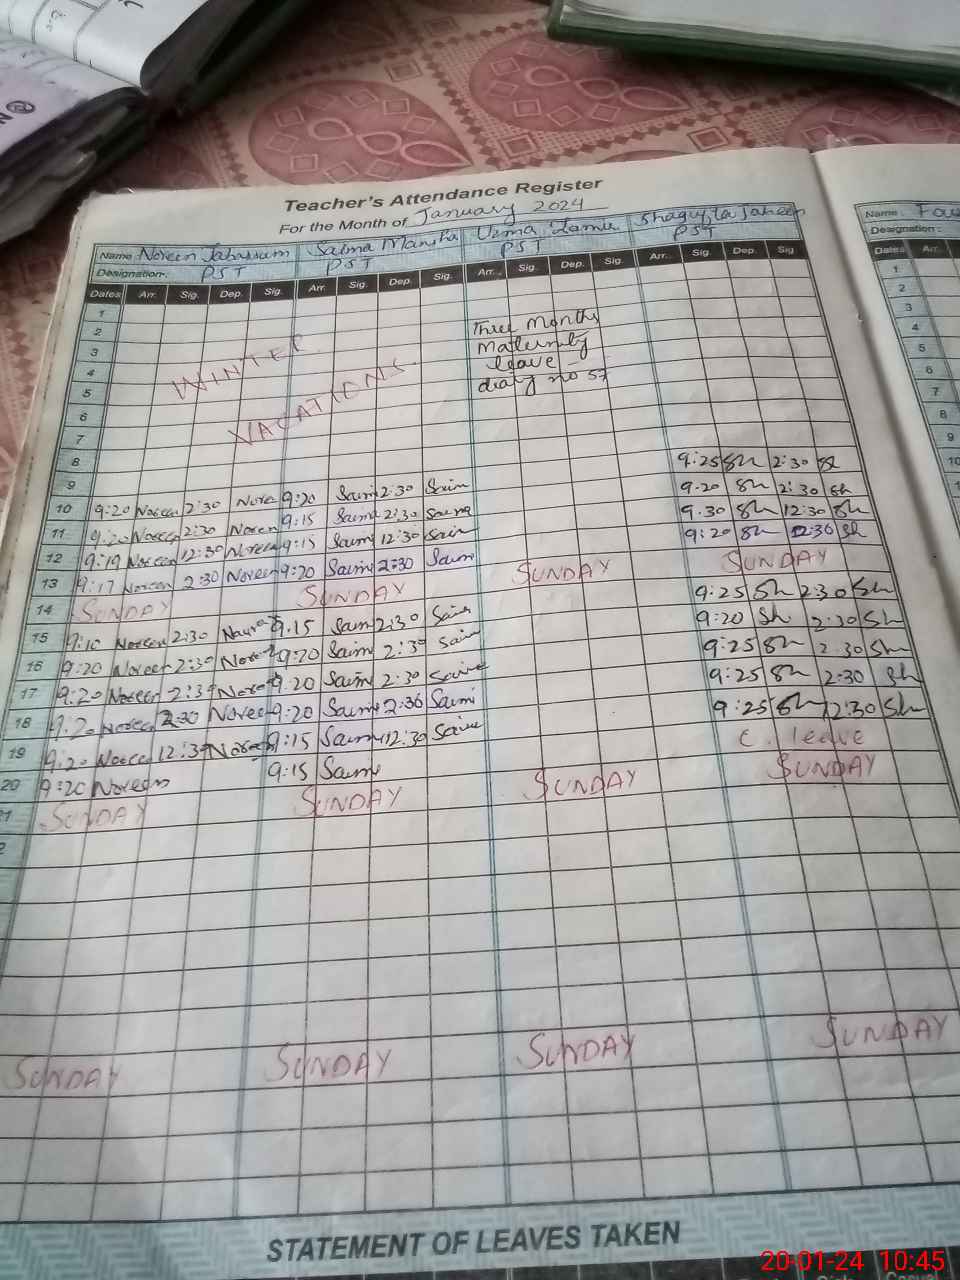 Teacher's Attendance Register
For the Month of January 2024
Name Noreen Tabassum Saima Mansha Uzma Zamir Shagufta Jabeen
Designation: PST PST PST PST
Dates Arr. Sig. Dep. Sig. Arr. Sig. Dep. Sig. Arr. Sig. Dep. Sig. Arr. Sig. Dep. Sig
Name:
Designation:
Dates Arr.
1
2 Three Months
3 WINTER Maternity
4 leave
5 diary no 57
6 VACATIONS
7
8 9:25 Sh 2:30 Sh
9 9:20 Sh 2:30 Sh
10 9:20 Noreen 2:30 Nore 9:20 Saim 2:30 Saim 9:30 Sh 12:30 Sh
11 9:20 Noreen 2:30 Noren 9:15 Saim 2:30 Saima 9:20 Sh 12:30 Sh
12 9:19 Noreen 12:30 Noreen 9:15 Saim 12:30 Saim
13 9:17 Noreen 2:30 Noreen 9:20 Saim 2:30 Saim SUNDAY SUNDAY
14 SUNDAY SUNDAY 9:25 Sh 2:30 Sh
15 9:10 Noreen 2:30 9:15 Saim 2:30 Saim 9:20 Sh 2:30 Sh
16 9:20 Noreen 2:30 9:20 Saim 2:30 Saim 9:25 Sh 2:30 Sh
17 9:20 Noreen 2:30 9:20 Saim 2:30 Saime 9:25 Sh 2:30 Sh
18 9:20 Noreen 2:30 Noreen 9:20 Saim 2:36 Saimi 9:25 Sh 12:30 Sh
19 9:20 Noree 12:30 Noreen 9:15 Saim 12:30 Saim C. leave
20 9:20 Noreen 9:15 Saime SUNDAY SUNDAY
SUNDAY SUNDAY
SUNDAY SUNDAY SUNDAY SUNDAY
1
2
3
4
5
6
7
8
9
10
STATEMENT OF LEAVES TAKEN
20-01-24 10:45